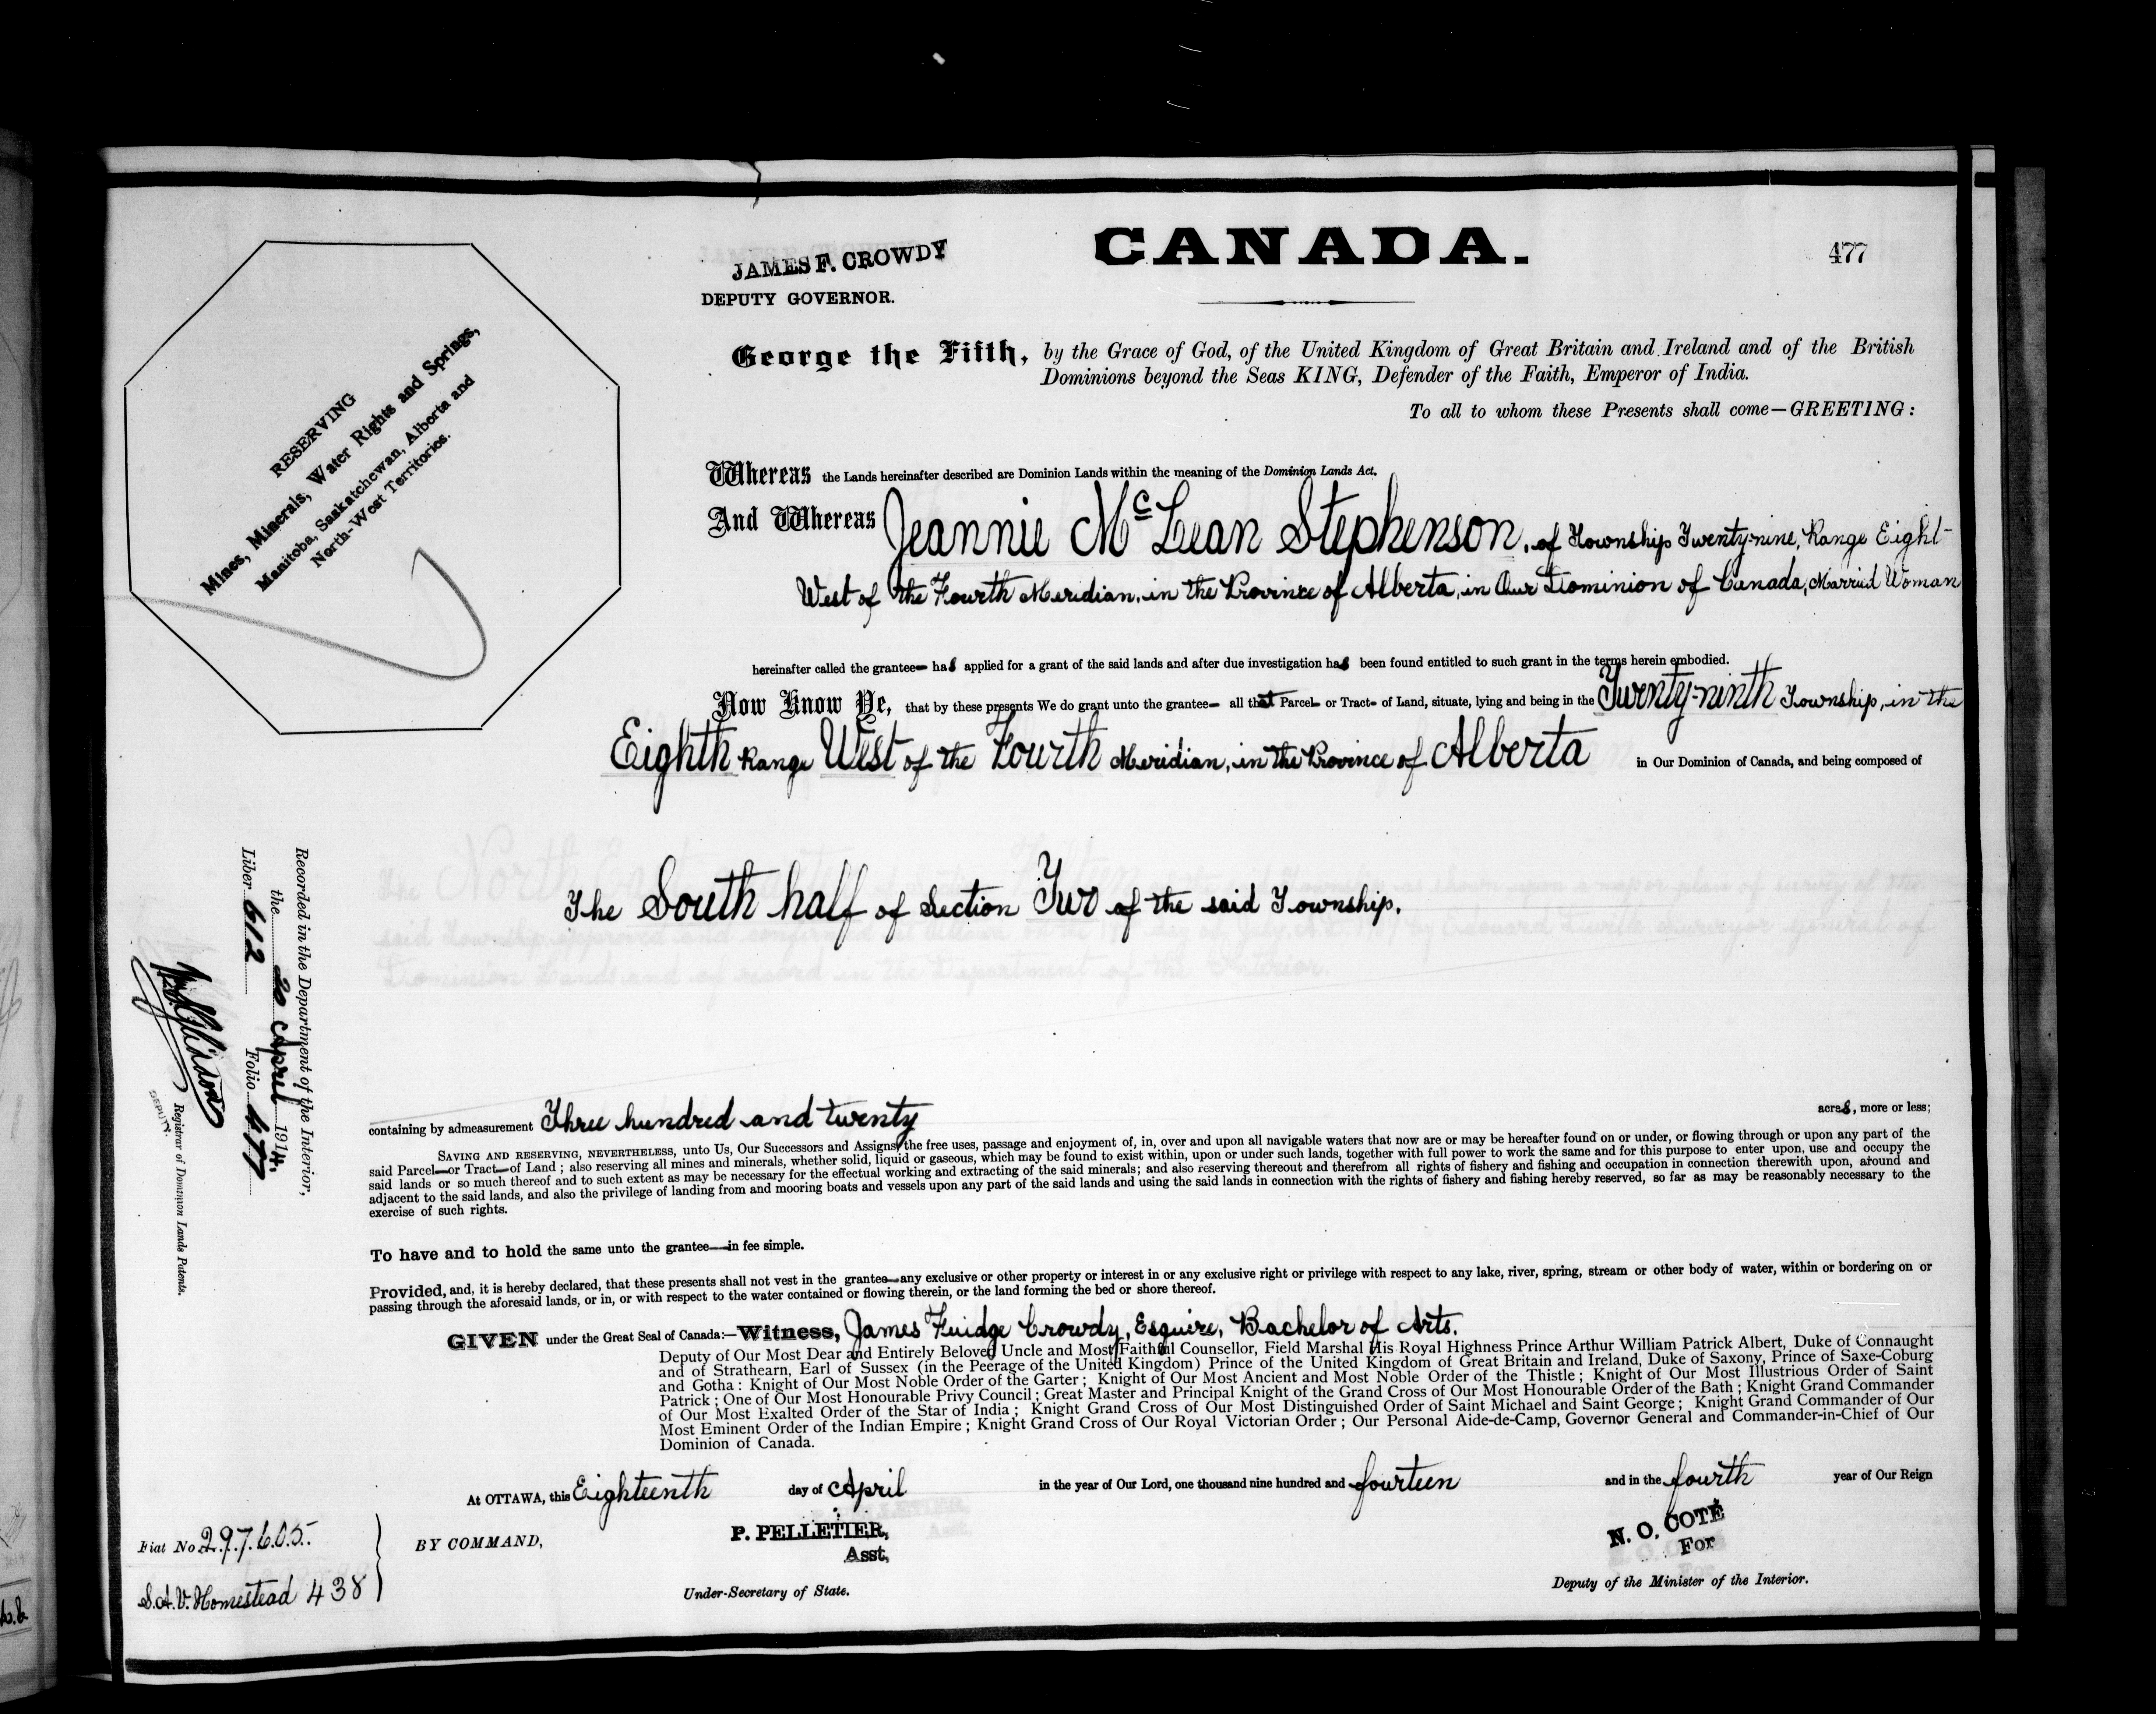 CANADA.
477
JAMES F. CROWDY
DEPUTY GOVERNOR.
George the Fifth, by the Grace of God, of the United Kingdom of Great Britain and Ireland and of the British
Dominions beyond the Seas KING, Defender of the Faith, Emperor of India.
To all to whom these Presents shall come—GREETING:
RESERVING
Mines, Minerals, Water Rights and Springs,
Manitoba, Saskatchewan, Alberta and
North-West Territories.
Whereas the Lands hereinafter described are Dominion Lands within the meaning of the Dominion Lands Act.
And Whereas Jeannie McLean Stephenson, of Township Twenty-nine, Range Eight
West of the Fourth Meridian, in the Province of Alberta, in Our Dominion of Canada, Married Woman
hereinafter called the grantee— has applied for a grant of the said lands and after due investigation has been found entitled to such grant in the terms herein embodied.
Now Know Ye, that by these presents We do grant unto the grantee— all that Parcel— or Tract— of Land, situate, lying and being in the Twenty-ninth Township, in the
Eighth Range West of the Fourth Meridian, in the Province of Alberta in Our Dominion of Canada, and being composed of
The South half of Section Two of the said Township.
containing by admeasurement Three hundred and twenty acres, more or less;
SAVING AND RESERVING, NEVERTHELESS, unto Us, Our Successors and Assigns, the free uses, passage and enjoyment of, in, over and upon all navigable waters that now are or may be hereafter found on or under, or flowing through or upon any part of the
said Parcel—or Tract—of Land; also reserving all mines and minerals, whether solid, liquid or gaseous, which may be found to exist within, upon or under such lands, together with full power to work the same and for this purpose to enter upon, use and occupy the
said lands or so much thereof and to such extent as may be necessary for the effectual working and extracting of the said minerals; and also reserving thereout and therefrom all rights of fishery and fishing and occupation in connection therewith upon, around and
adjacent to the said lands, and also the privilege of landing from and mooring boats and vessels upon any part of the said lands and using the said lands in connection with the rights of fishery and fishing hereby reserved, so far as may be reasonably necessary to the
exercise of such rights.
To have and to hold the same unto the grantee—in fee simple.
Provided, and, it is hereby declared, that these presents shall not vest in the grantee—any exclusive or other property or interest in or any exclusive right or privilege with respect to any lake, river, spring, stream or other body of water, within or bordering on or
passing through the aforesaid lands, or in, or with respect to the water contained or flowing therein, or the land forming the bed or shore thereof.
GIVEN under the Great Seal of Canada:—Witness, James Fuidge Crowdy, Esquire, Bachelor of Arts.
Deputy of Our Most Dear and Entirely Beloved Uncle and Most Faithful Counsellor, Field Marshal His Royal Highness Prince Arthur William Patrick Albert, Duke of Connaught
and of Strathearn, Earl of Sussex (in the Peerage of the United Kingdom) Prince of the United Kingdom of Great Britain and Ireland, Duke of Saxony, Prince of Saxe-Coburg
and Gotha: Knight of Our Most Noble Order of the Garter; Knight of Our Most Ancient and Most Noble Order of the Thistle; Knight of Our Most Illustrious Order of Saint
Patrick; One of Our Most Honourable Privy Council; Great Master and Principal Knight of the Grand Cross of Our Most Honourable Order of the Bath; Knight Grand Commander
of Our Most Exalted Order of the Star of India; Knight Grand Cross of Our Most Distinguished Order of Saint Michael and Saint George; Knight Grand Commander of Our
Most Eminent Order of the Indian Empire; Knight Grand Cross of Our Royal Victorian Order; Our Personal Aide-de-Camp, Governor General and Commander-in-Chief of Our
Dominion of Canada.
At OTTAWA, this Eighteenth day of April in the year of Our Lord, one thousand nine hundred and fourteen and in the fourth year of Our Reign
BY COMMAND,
P. PELLETIER,
Asst,
Under-Secretary of State.
N. O. COTÉ
For
Deputy of the Minister of the Interior.
Fiat No 297605.
S.A.V. Homestead 438
Recorded in the Department of the Interior,
the 20 April 1914.
Liber 612 Folio 477
Registrar of Dominion Lands Patents.
DEPUTY.